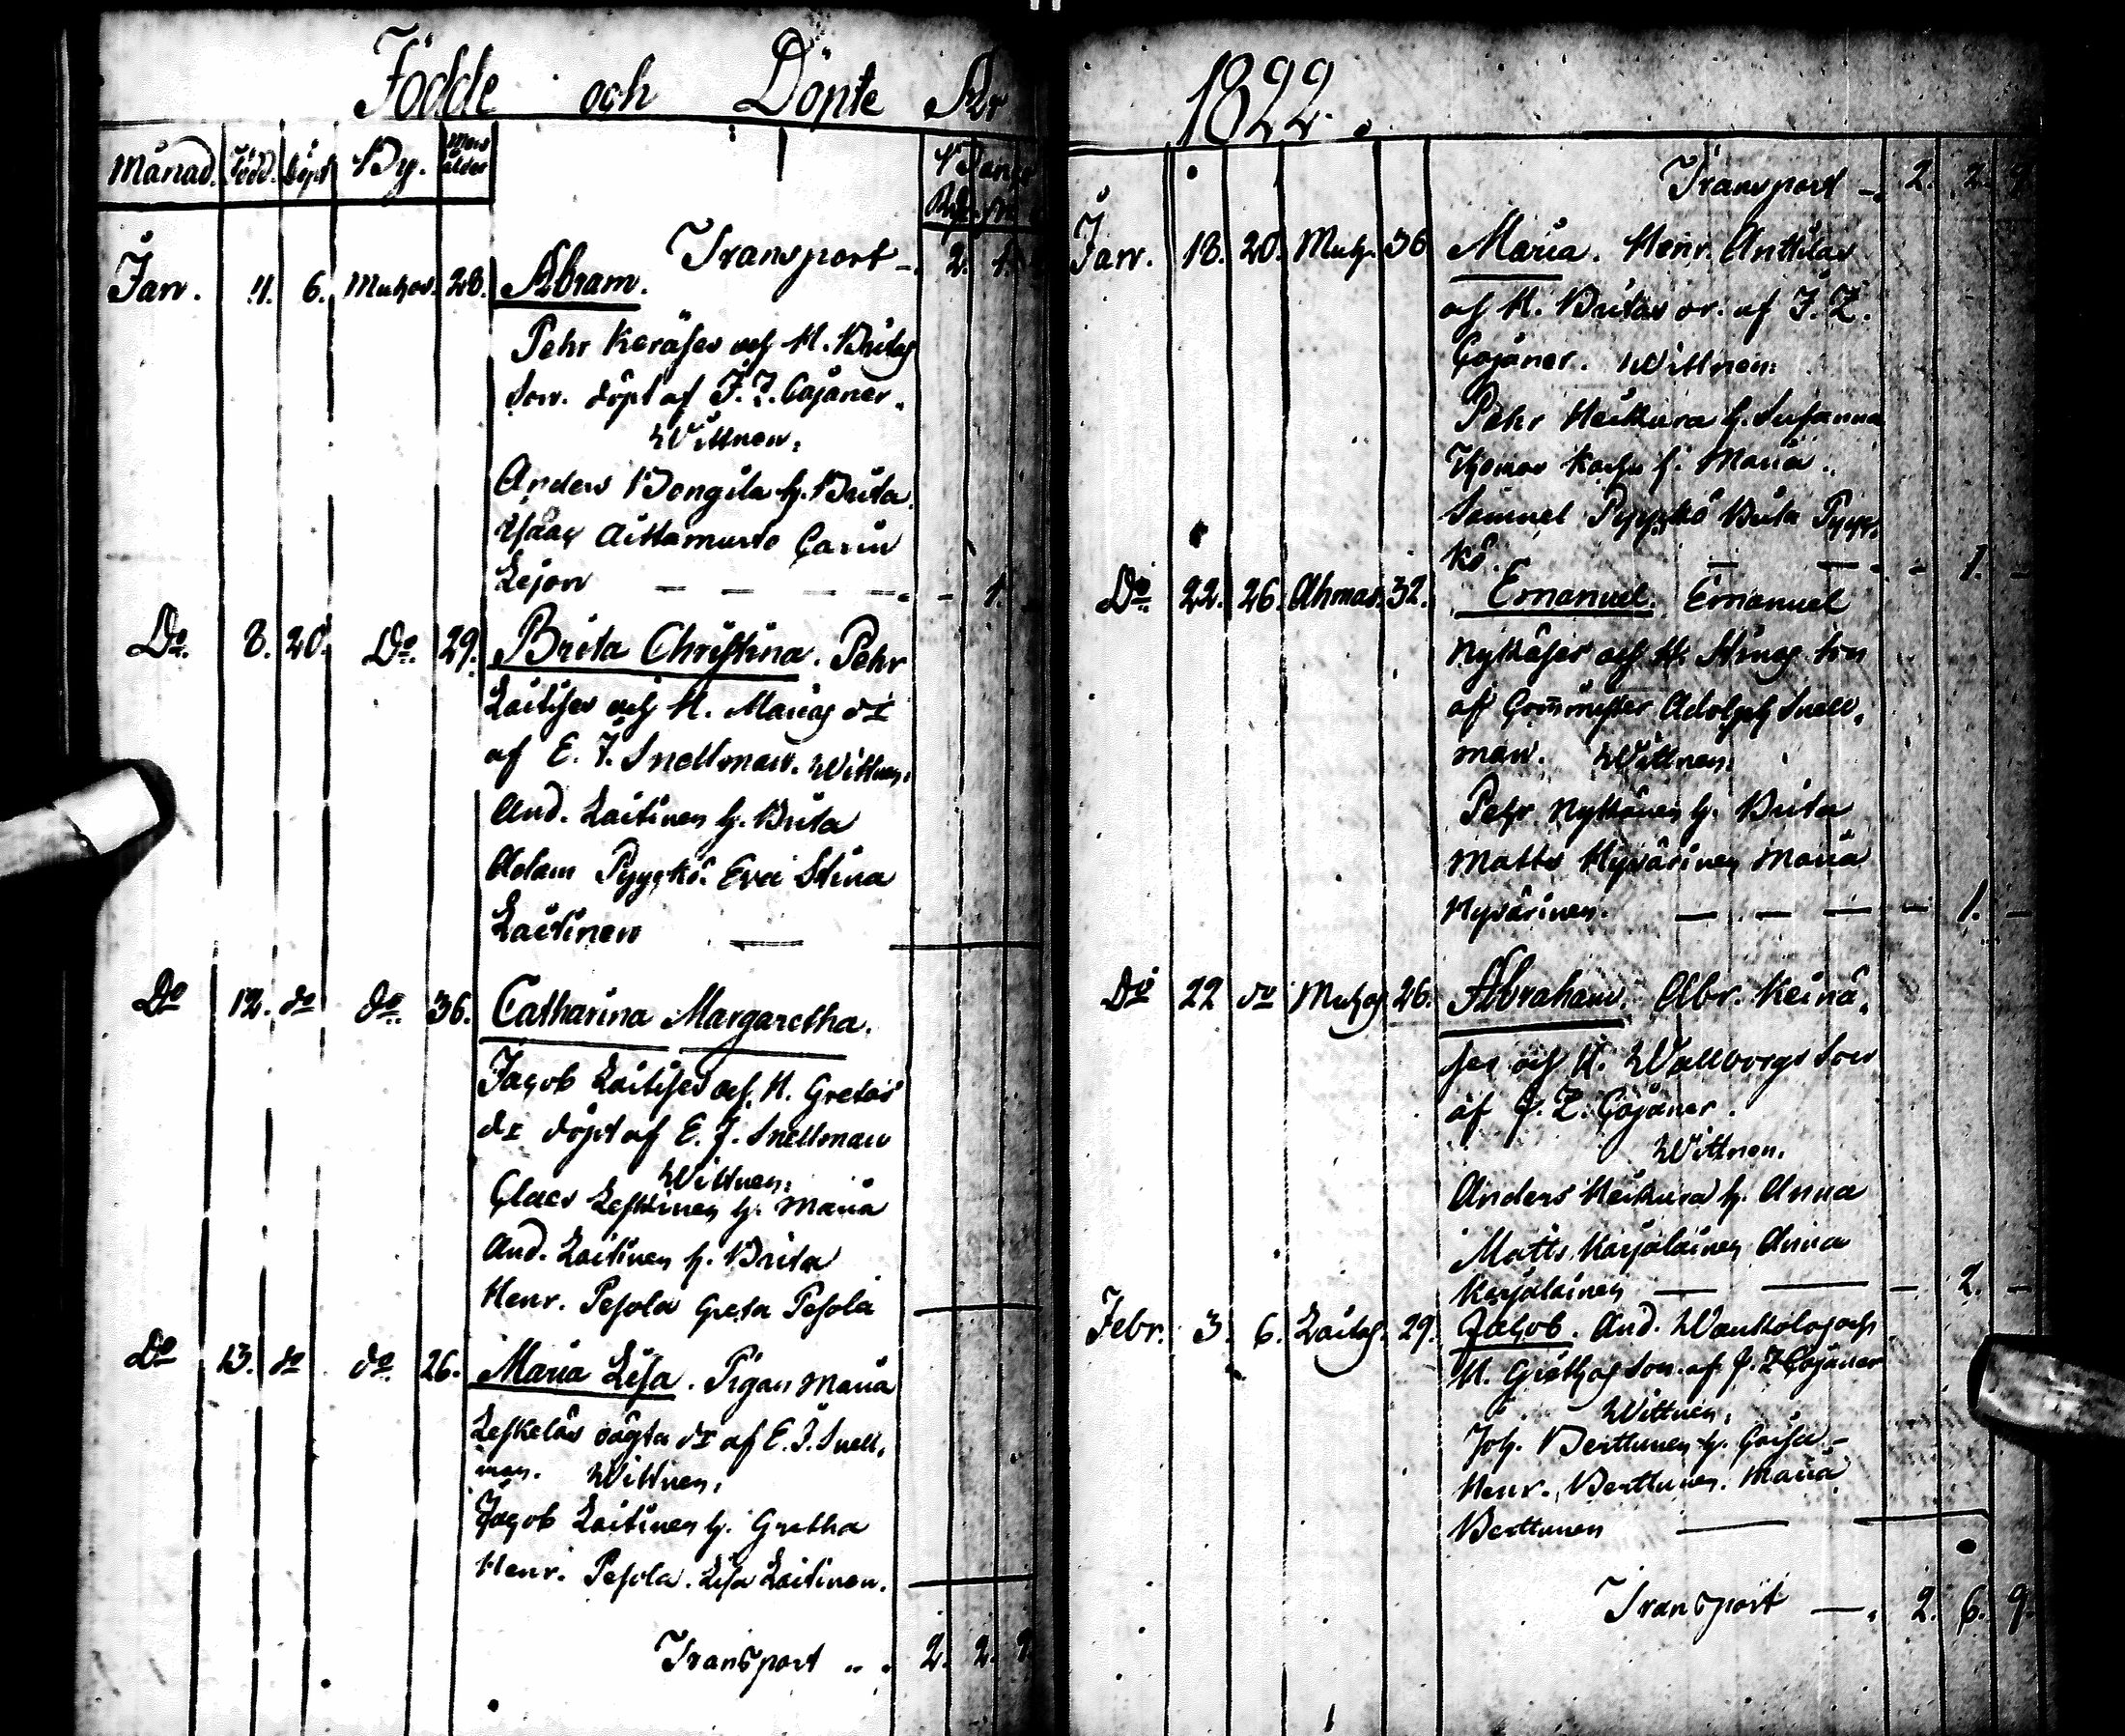 Födde och Döpte År
Månad. Född. Döpt By. Mod. ålder
Transport 2. 1.
Jan. 4. 6. Muhos. 28. Abram.
Pehr Keräses och H. Britas
son. döpt af J. Z. Cajaner.
Wittnen:
Anders Bongila h. Brita.
Isaac Aittamurto Carin
Lejon — — — — - 1.
Do. 8. 20. Do. 29. Brita Christina. Pehr
Laitises och H. Marias dr
af E. J. Snellman. Wittnen:
And. Laitinen h. Brita
Adam Pyyckö. Eva Stina
Laitinen —
Do 12. do do. 36. Catharina Margaretha.
Jacob Laitises och H. Gretas
dr döpt af E. J. Snellman
Wittnen:
Claes Leskinen h. Maria
And. Laitinen h. Brita
Henr. Pesola Greta Pesola
Do 13. do do 26. Maria Lisa. Pigan Maria
Leskeläs oägta dr af E. J. Snell,
man. Wittnen,
Jacob Laitinen h. Gretha
Henr. Pesola. Lisa Laitinen.
Transport 2. 2. 9
1822.
Transport 2. 2. 9
Jan. 18. 20. Muh. 36 Maria. Henr. Anttilas
och H. Britas dr. af J. Z.
Cajaner. Wittnen:
Pehr Heikura h. Susanna
Thomas h. Maria.
Samuel Pyyckö Brita Pyyc,
kö. — — - 1. —
Do. 22. 26. Ahmas. 32. Emanuel. Emanuel
Nykäses och H. Stinas son
af Comminister Adolph Snell,
man. Wittnen:
Pehr Nykänen h. Brita
Matts Hyvärinen Maria
Hyvärinen. — — — — 1. —
Do 22 do Muhos 26. Abraham. Abr. Keinä,
ses och H. Wallborgs son
af J. Z. Cajaner.
Wittnen.
Anders Heikura h. Anna
Matts Karjalainen Anna
Karjalainen — — — 2. —
Febr. 3. 6. Laitas. 29. Jacob. And. Wänkölas och
H. Grethas son. af J. Z Cajaner
Wittnen,
Joh. Berttunen h. Caisa -
Henr. Berttunen. Maria
Berttunen —
Transport — 2. 6. 9.